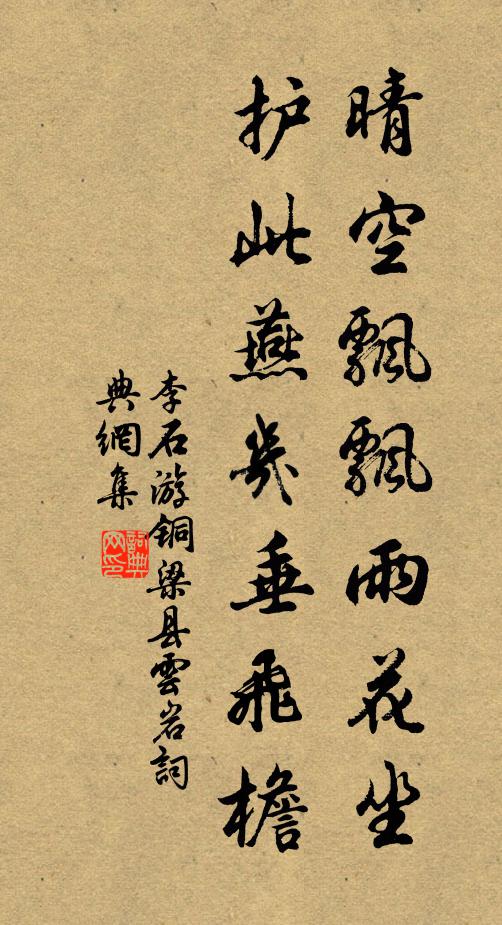 晴空飄飄雨花坐
护此燕几垂飛檐
李石游铜梁县雲岩詞
典網集
詞典网印